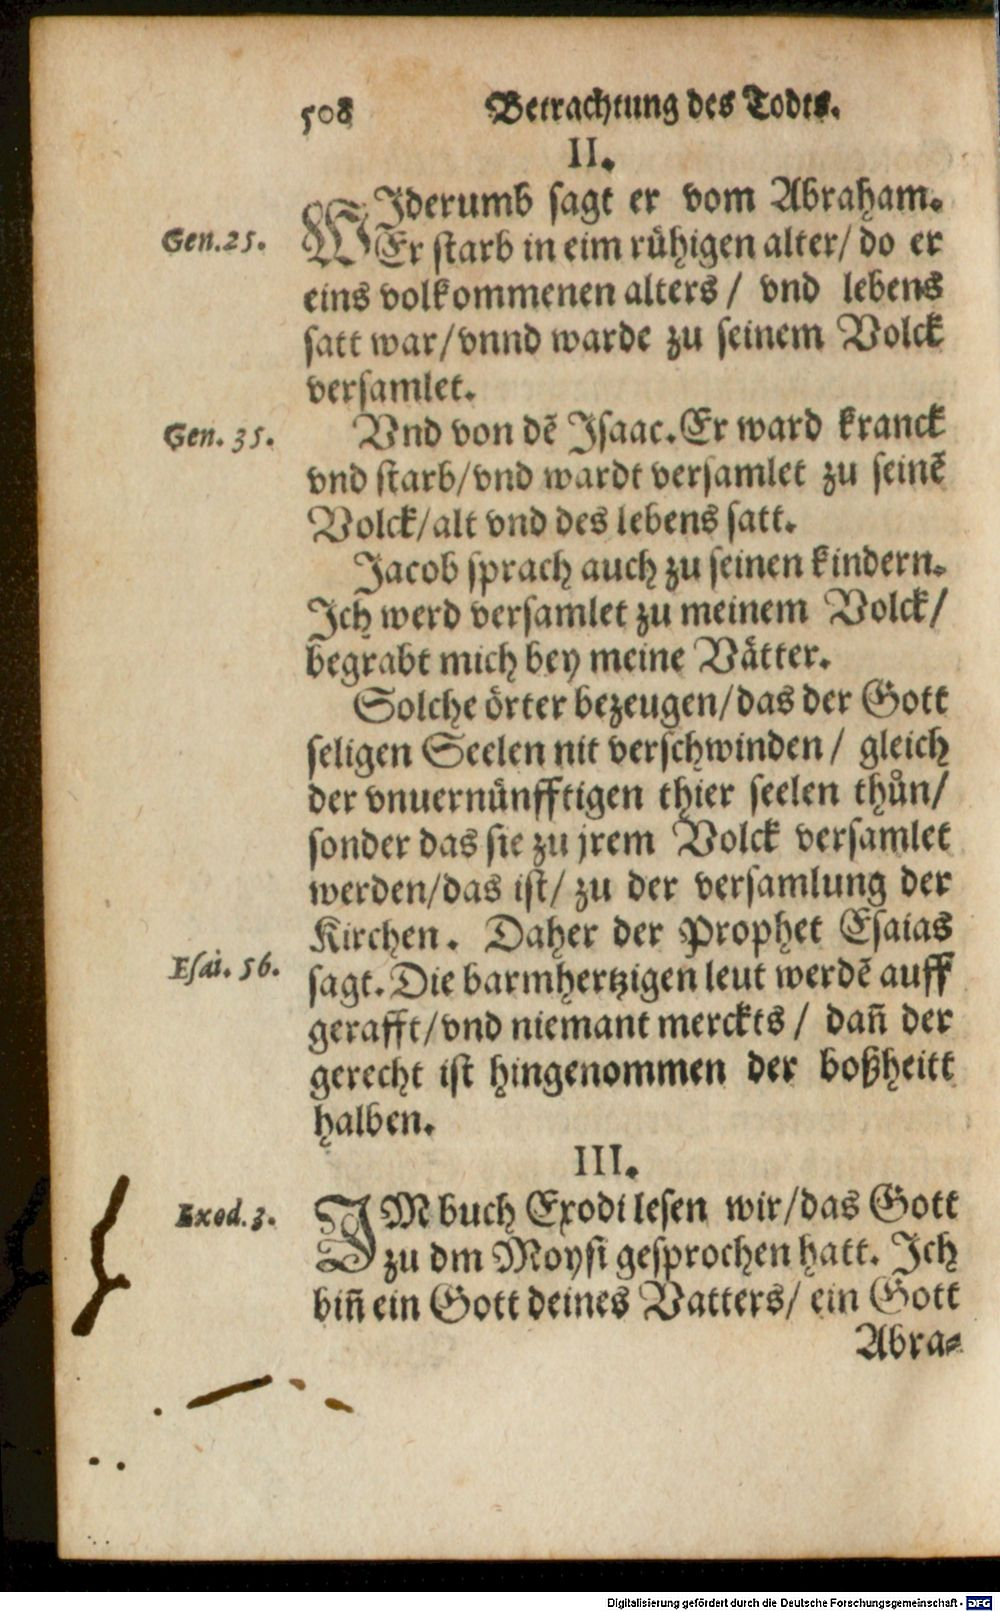 508 Betrachtung des Todts.
II.
WIderumb sagt er vom Abraham.
Gen. 25. Er starb in eim rühigen alter/ do er
eins volkommenen alters / vnd lebens
satt war/vnnd warde zu seinem Volck
versamlet.
Gen. 35. Vnd von dẽ Isaac. Er ward kranck
vnd starb/vnd wardt versamlet zu seinẽ
Volck/alt vnd des lebens satt.
Jacob sprach auch zu seinen kindern.
Ich werd versamlet zu meinem Volck/
begrabt mich bey meine Vätter.
Solche örter bezeugen/das der Gott
seligen Seelen nit verschwinden / gleich
der vnuernünfftigen thier seelen thůn/
sonder das sie zu jrem Volck versamlet
werden/das ist/ zu der versamlung der
Kirchen. Daher der Prophet Esaias
Esai. 56. sagt. Die barmhertzigen leut werdẽ auff
gerafft/vnd niemant merckts / dañ der
gerecht ist hingenommen der boßheitt
halben.
III.
Exod. 3. IM buch Exodi lesen wir/das Gott
zu dm Moysi gesprochen hatt. Ich
biñ ein Gott deines Vatters/ ein Gott
Abra-
Digitalisierung gefördert durch die Deutsche Forschungsgemeinschaft - DFG